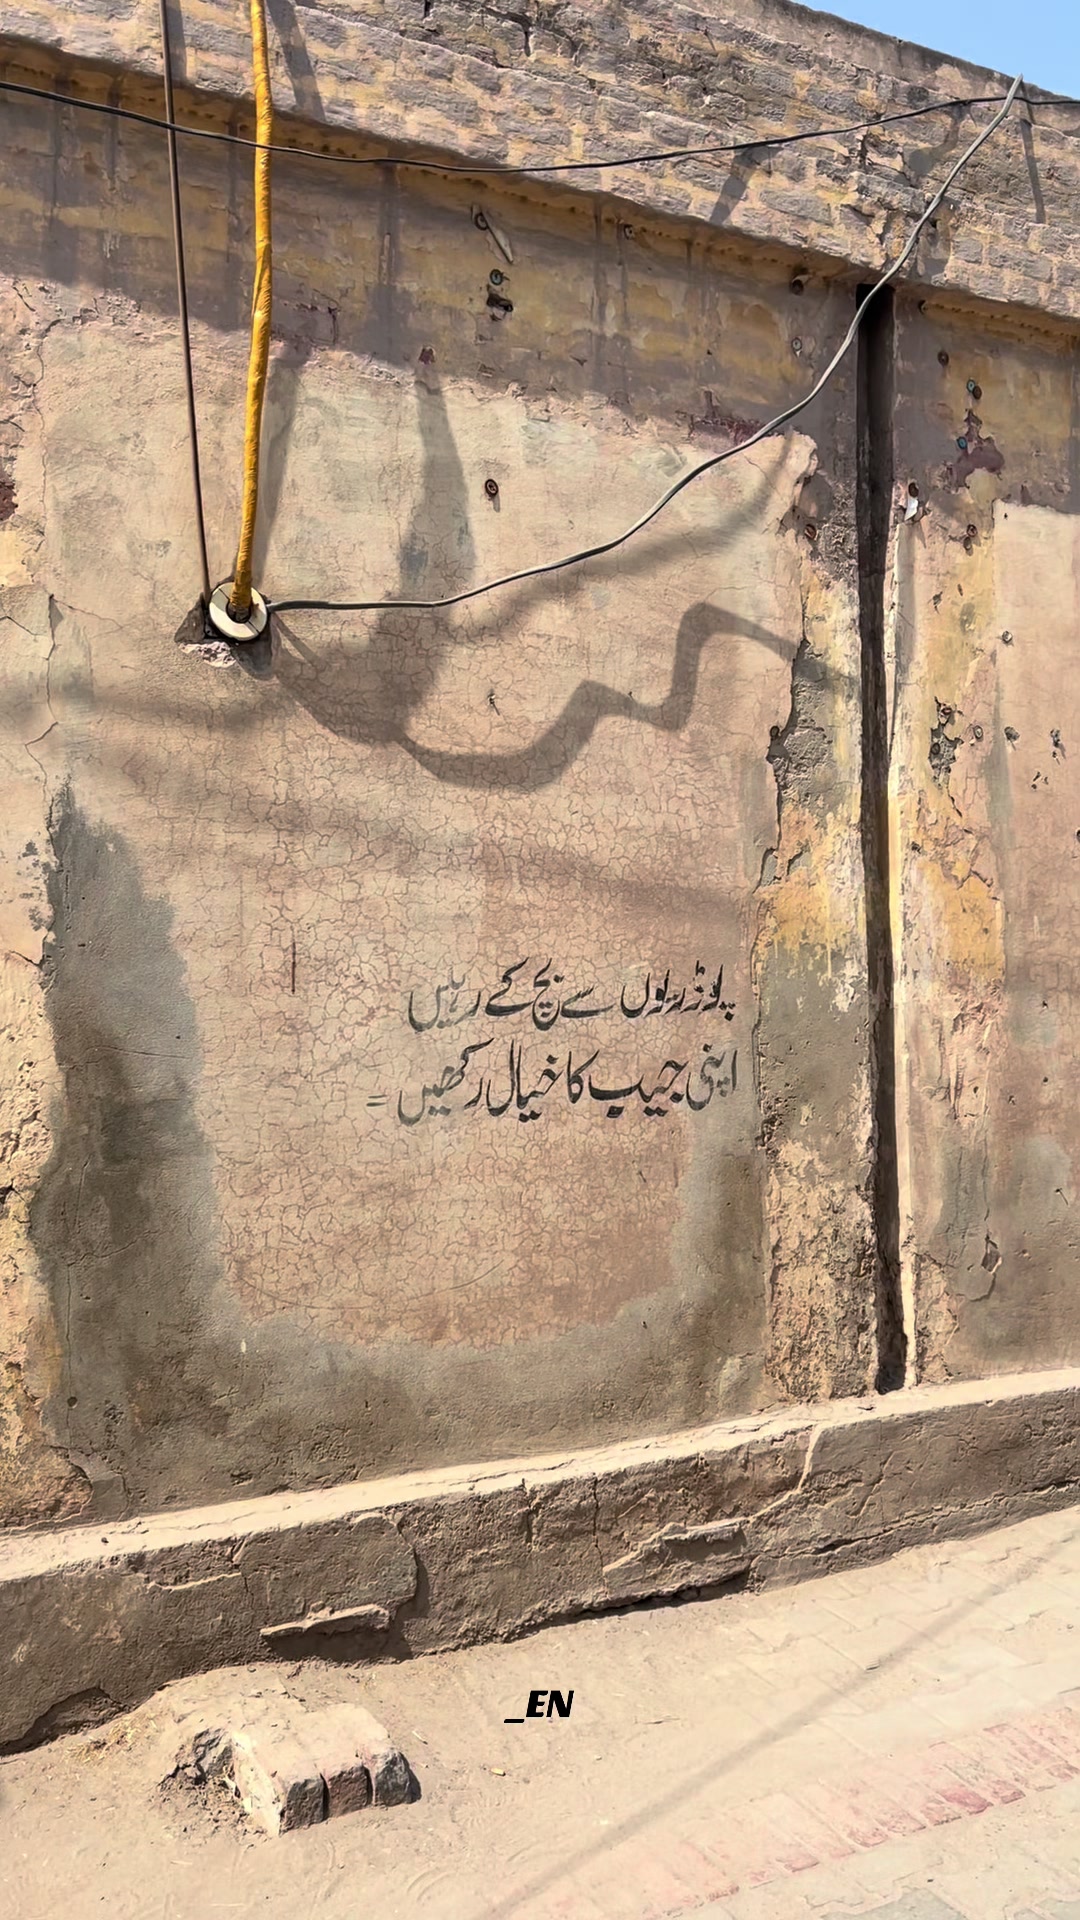 پوڈریوں سے بچ کے رہیں
اپنی جیب کا خیال رکھیں =
_EN